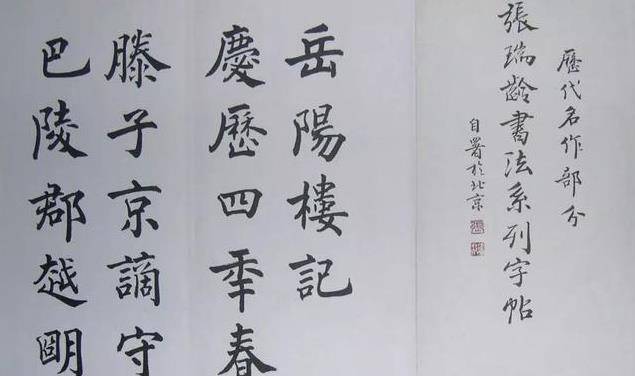 歷代名作部分
張瑞齡書法系列字帖
自署於北京
岳陽樓記
慶歷四年春
滕子京謫守
巴陵郡越明